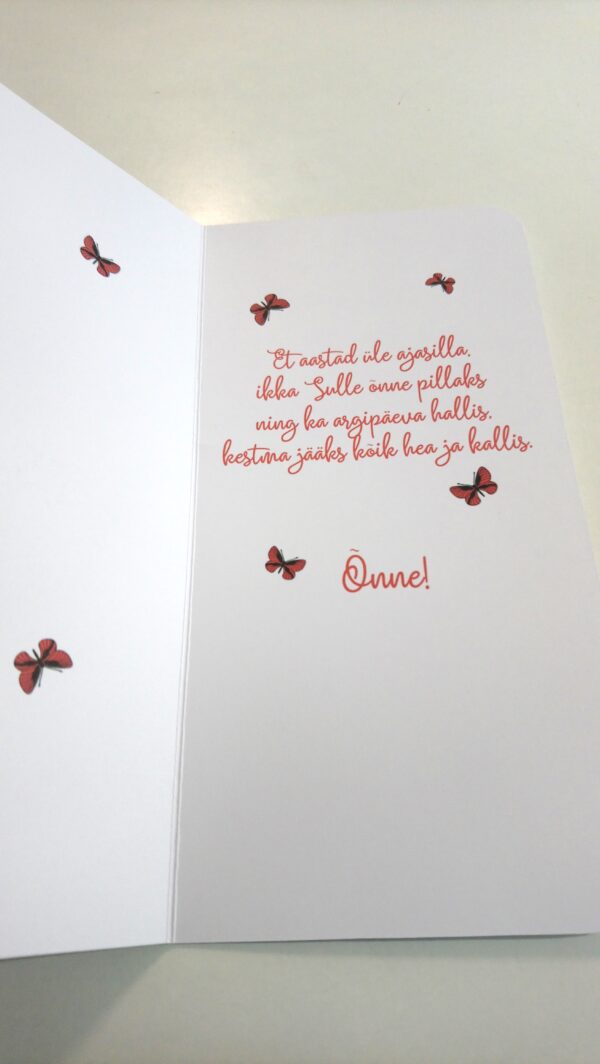 Et aastad üle ajasilla,
ikka Sulle õnne pillaks
ning ka argipäeva hallis,
kestma jääks kõik hea ja kallis.
Õnne!